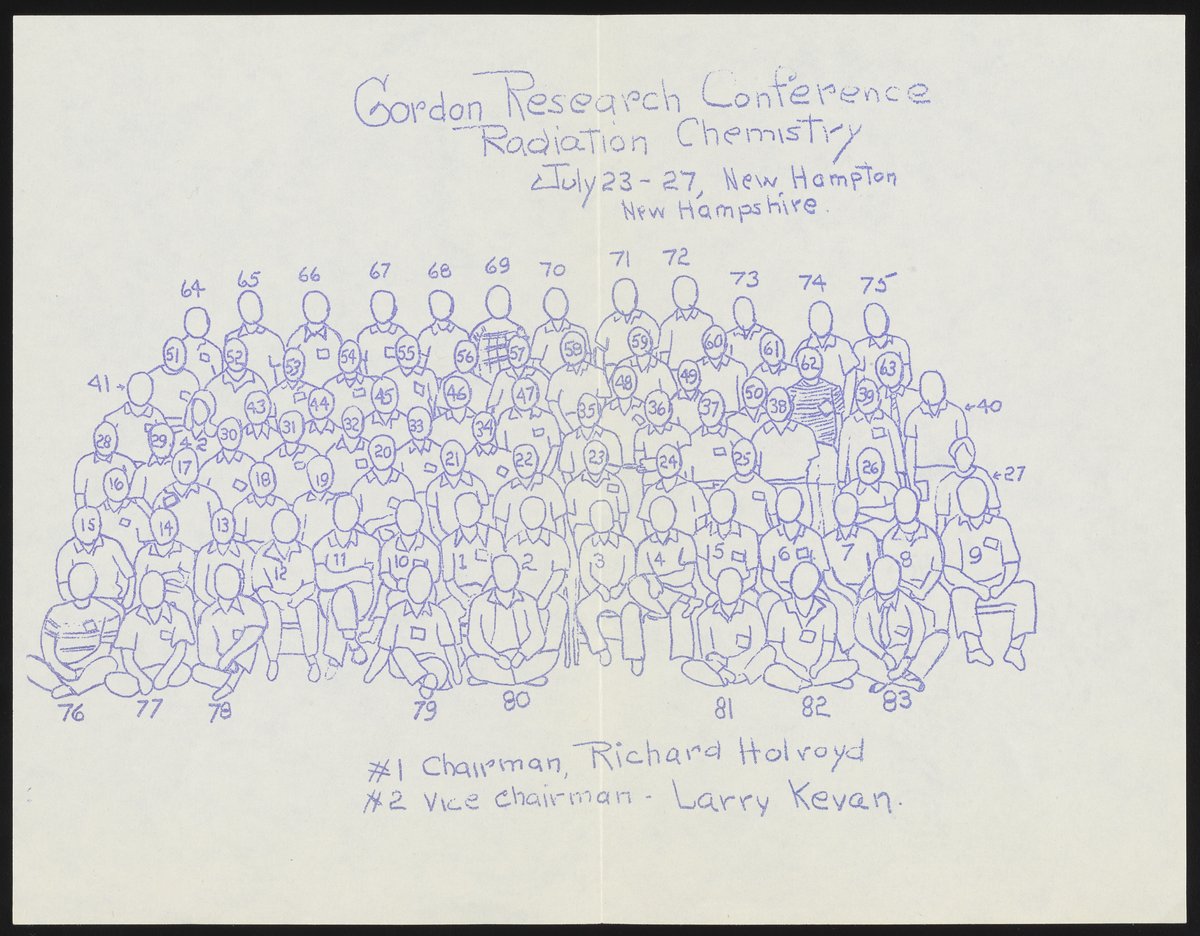 Gordon Research Conference
Radiation Chemistry
July 23-27, New Hampton
New Hampshire.
64 65 66 67 68 69 70 71 72 73 74 75
51 52 53 54 55 56 57 58 59 60 61 62 63
41 42 43 44 45 46 47 48 49 50 40
28 29 30 31 32 33 34 35 36 37 38 39
16 17 18 19 20 21 22 23 24 25 26 27
15 14 13 12 11 10 1 2 3 4 5 6 7 8 9
76 77 78 79 80 81 82 83
#1 Chairman, Richard Holroyd
#2 Vice chairman - Larry Kevan.